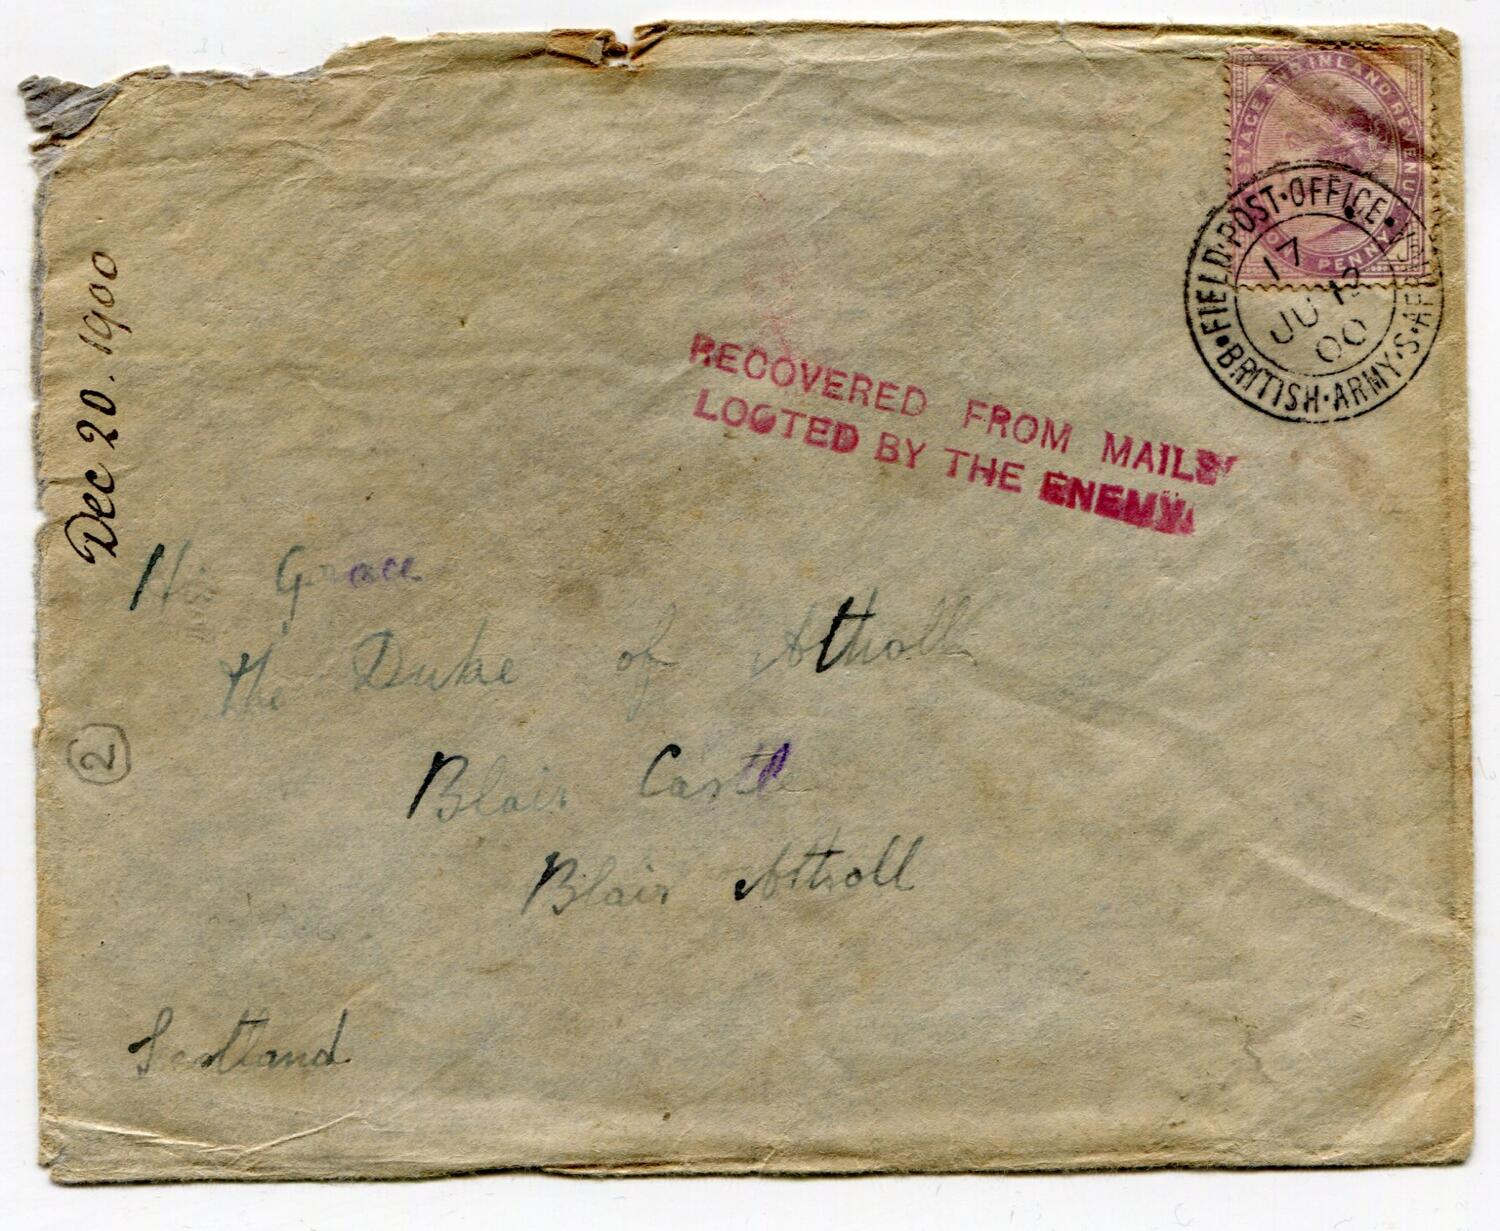 POSTAGE AND INLAND REVENUE
ONE PENNY
FIELD·POST·OFFICE·
17
JU 12
00
BRITISH·ARMY·S·AFRICA
RECOVERED FROM MAILS
LOOTED BY THE ENEMY.
Dec 20. 1900
His Grace
the Duke of Atholl
Blair Castle
Blair Atholl
Scotland
2